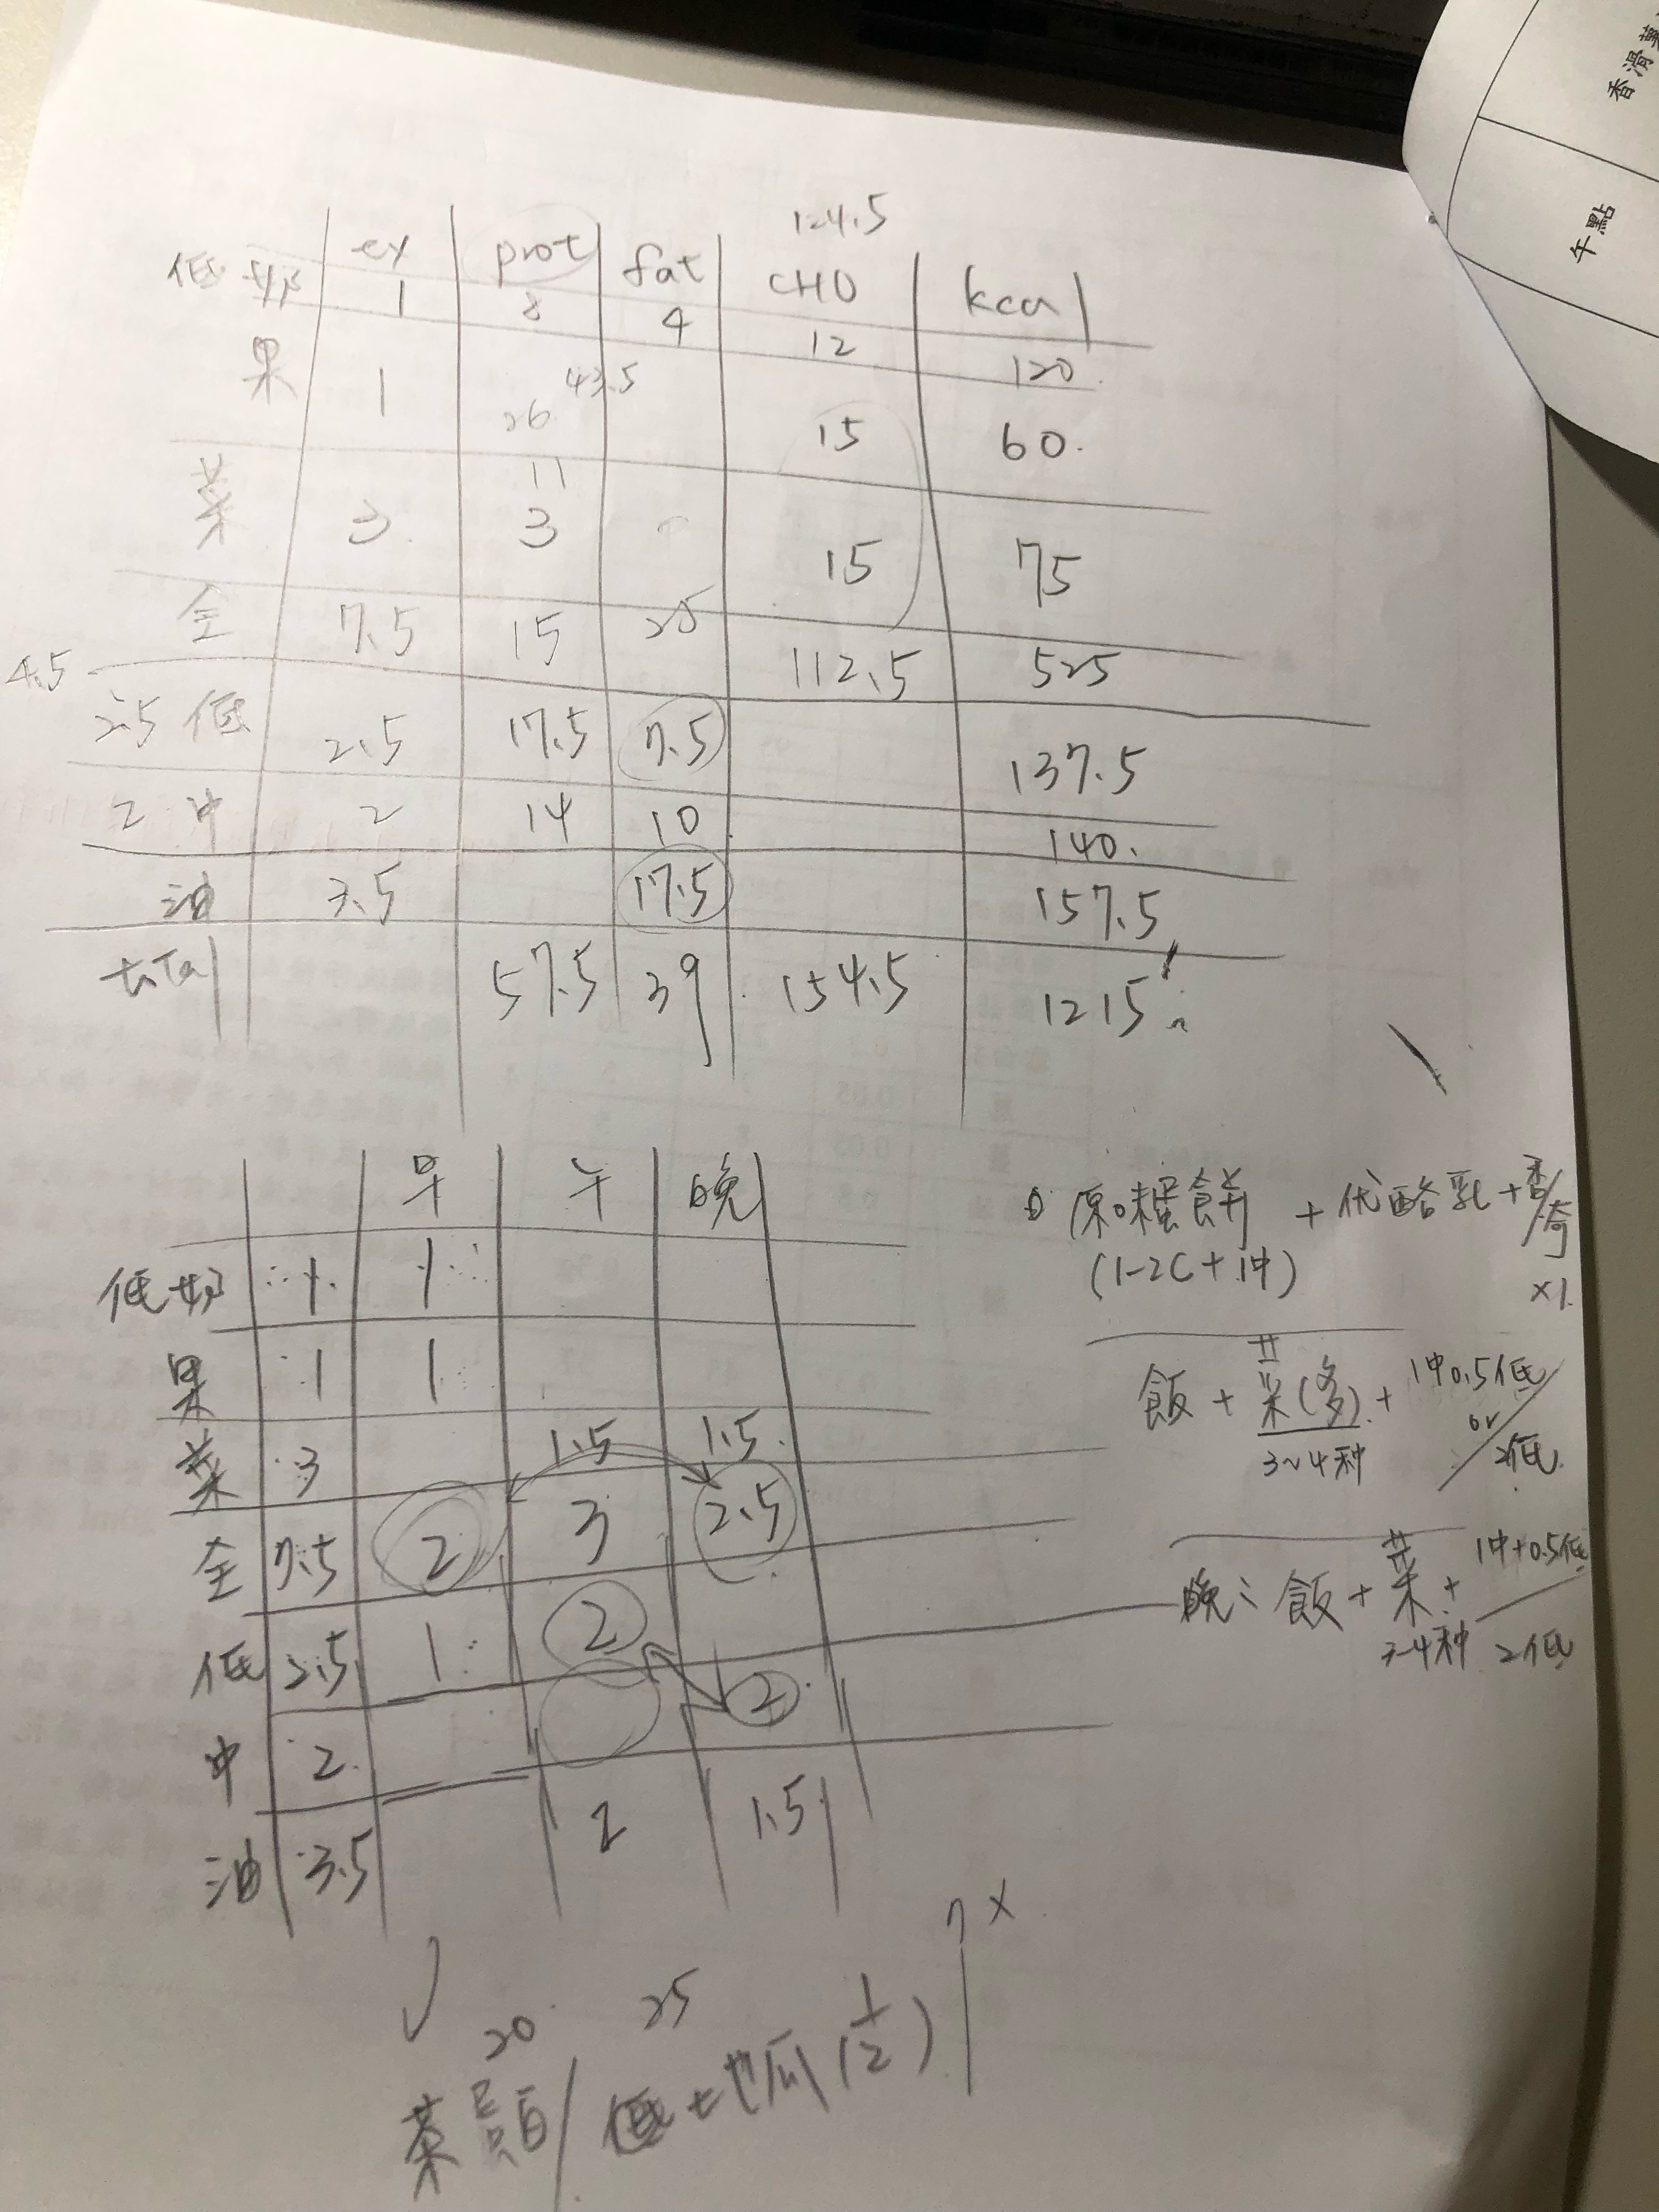 香滑
午點
124.5
ex prot fat CHO kcal
低奶 1 8 4 12 120
43.5
果 1 26 15 60
11
菜 3 3 15 75
全 7.5 15 25 112.5 525
4.5
2.5 低 2.5 17.5 7.5 137.5
2 中 2 14 10 140
油 3.5 17.5 157.5
total 57.5 39 154.5 1215
早 午 晚
低奶 1 1
果 1 1
菜 3 1.5 1.5
全 7.5 2 3 2.5
低 2.5 1 2
中 2 2
油 3.5 2 1.5
原味蛋餅 + 优酪乳 + 香蕉 x1
(1-2C + 1中)
飯 + 菜(多) + 1中0.5低 or 2低
3~4种
晚: 飯 + 菜 + 1中+0.5低 2低
3-4种
20 25
地瓜 (1/2)